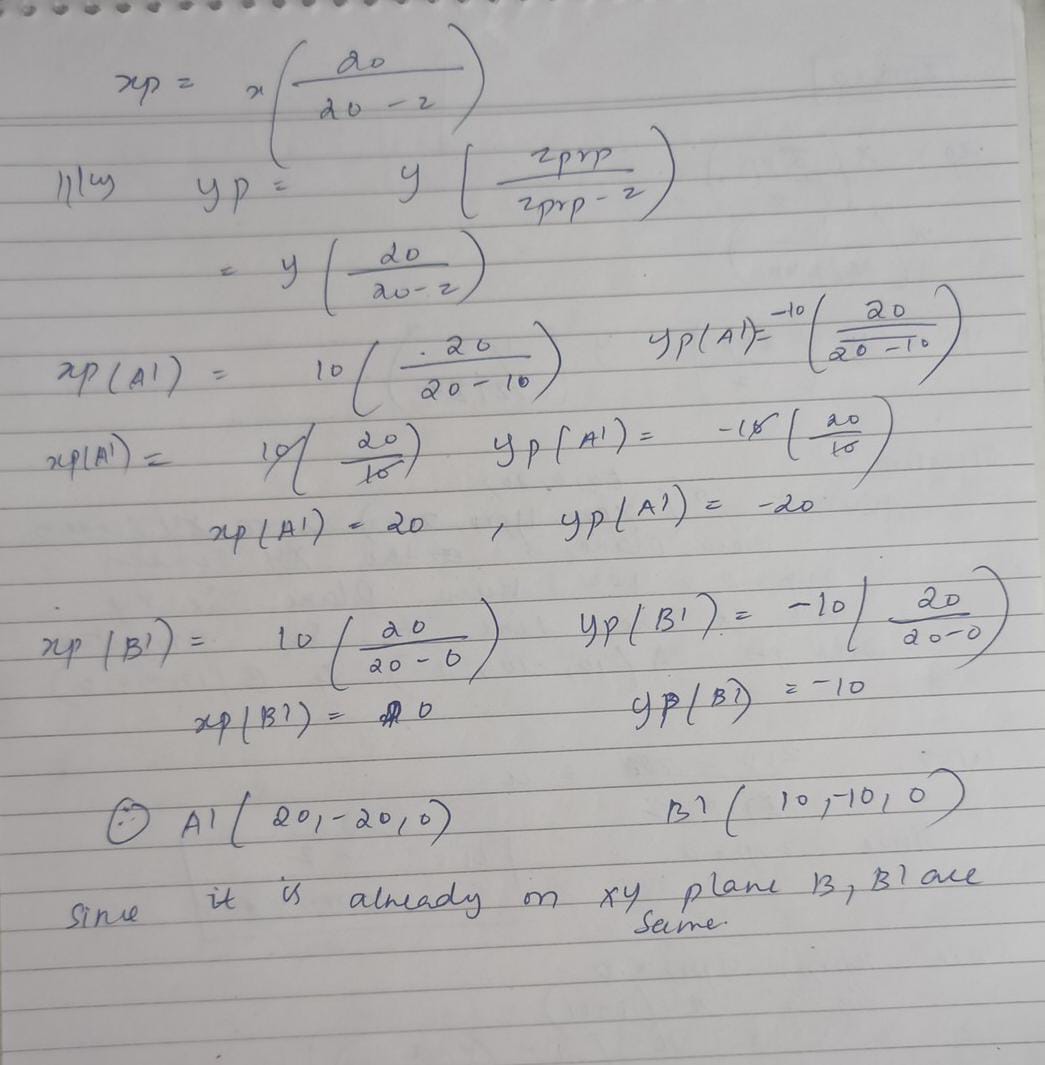 xp = x ( 20 / 20 - z )
|||ly yp = y ( zprp / zprp - z )
= y ( 20 / 20 - z )
xp(A') = 10 ( 20 / 20 - 10 ) yp(A') = -10 ( 20 / 20 - 10 )
xp(A') = 10 ( 20 / 10 ) yp(A') = -10 ( 20 / 10 )
xp(A') = 20 , yp(A') = -20
xp(B') = 10 ( 20 / 20 - 0 ) yp(B') = -10 ( 20 / 20-0 )
xp(B') = 0 yp(B') = -10
A' ( 20, -20, 0) B' ( 10, -10, 0 )
Since it is already on xy plane B, B' are
Same.